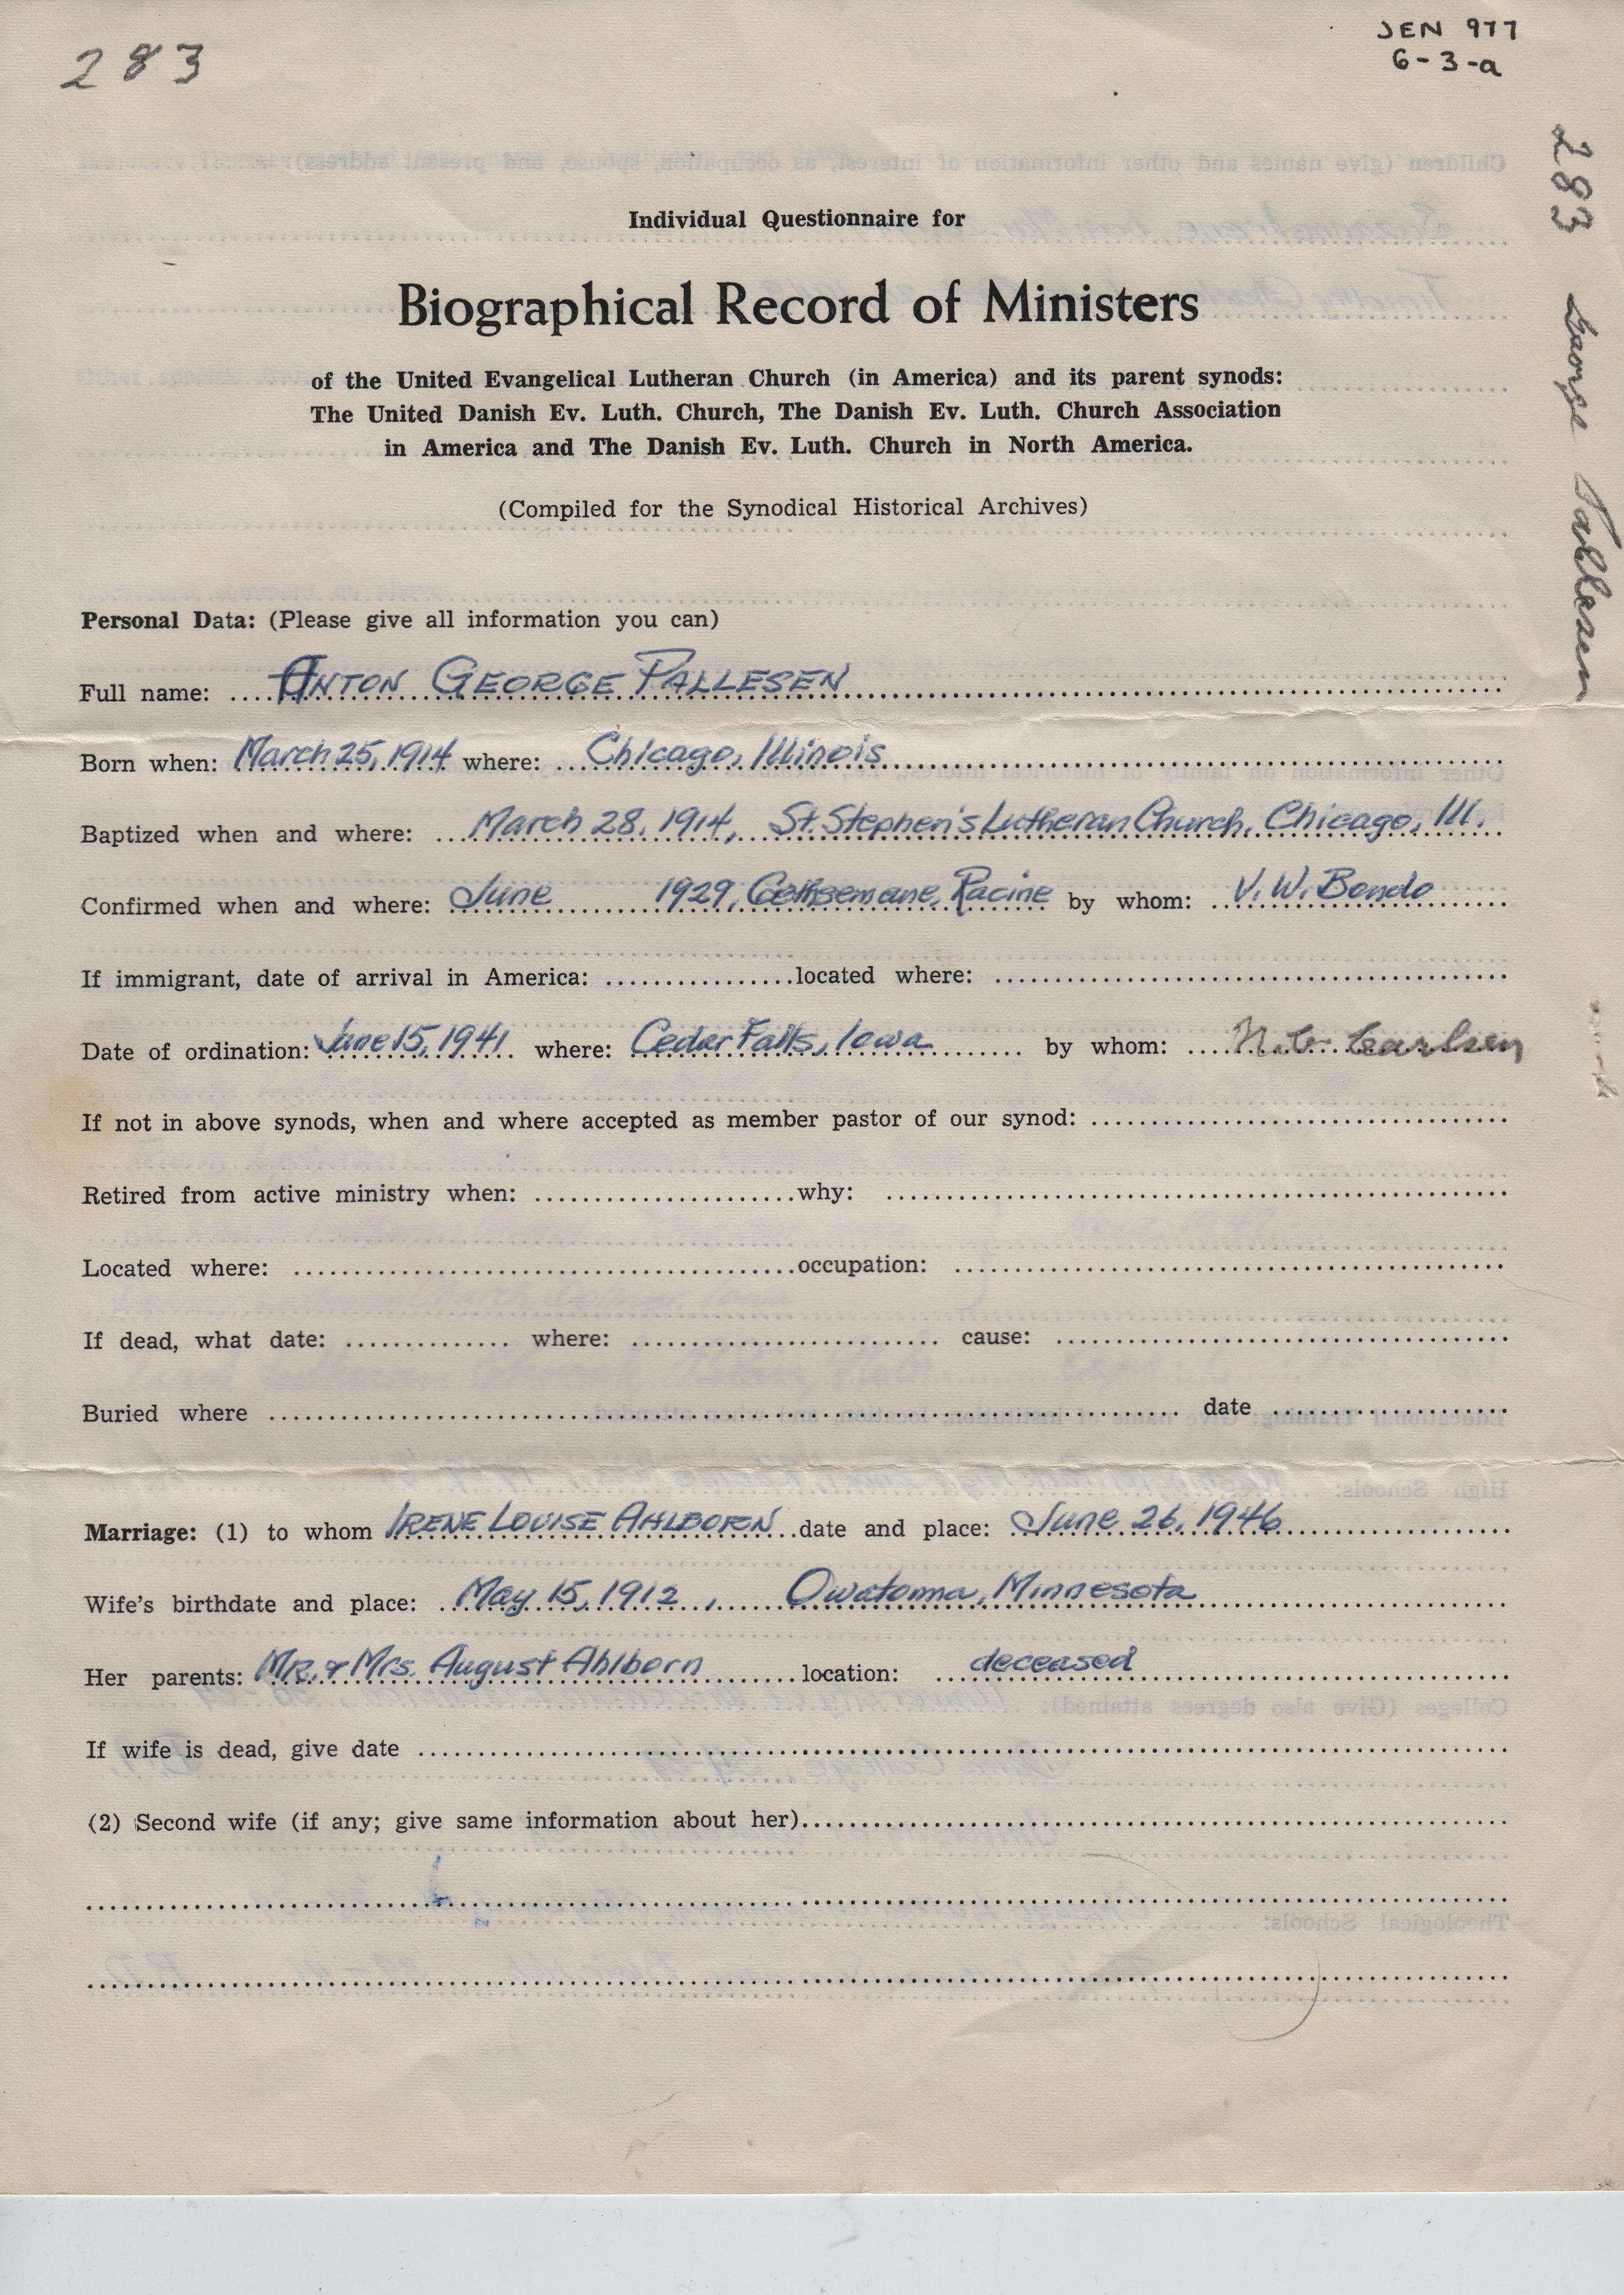 283
JEN 977
6-3-a
283 George Pallesen
Individual Questionnaire for
Biographical Record of Ministers
of the United Evangelical Lutheran Church (in America) and its parent synods:
The United Danish Ev. Luth. Church, The Danish Ev. Luth. Church Association
in America and The Danish Ev. Luth. Church in North America.
(Compiled for the Synodical Historical Archives)
Personal Data: (Please give all information you can)
Full name: ANTON GEORGE PALLESEN
Born when: March 25, 1914 where: Chicago, Illinois
Baptized when and where: March 28, 1914, St. Stephen's Lutheran Church, Chicago, Ill.
Confirmed when and where: June 1929, Gethsemane, Racine by whom: V. W. Bondo
If immigrant, date of arrival in America: located where:
Date of ordination: June 15, 1941 where: Cedar Falls, Iowa by whom: N. C. Carlsen
If not in above synods, when and where accepted as member pastor of our synod:
Retired from active ministry when: why:
Located where: occupation:
If dead, what date: where: cause:
Buried where date
Marriage: (1) to whom IRENE LOUISE AHLBORN date and place: June 26, 1946
Wife's birthdate and place: May 15, 1912, Owatonna, Minnesota
Her parents: Mr. & Mrs. August Ahlborn location: deceased
If wife is dead, give date
(2) Second wife (if any; give same information about her)